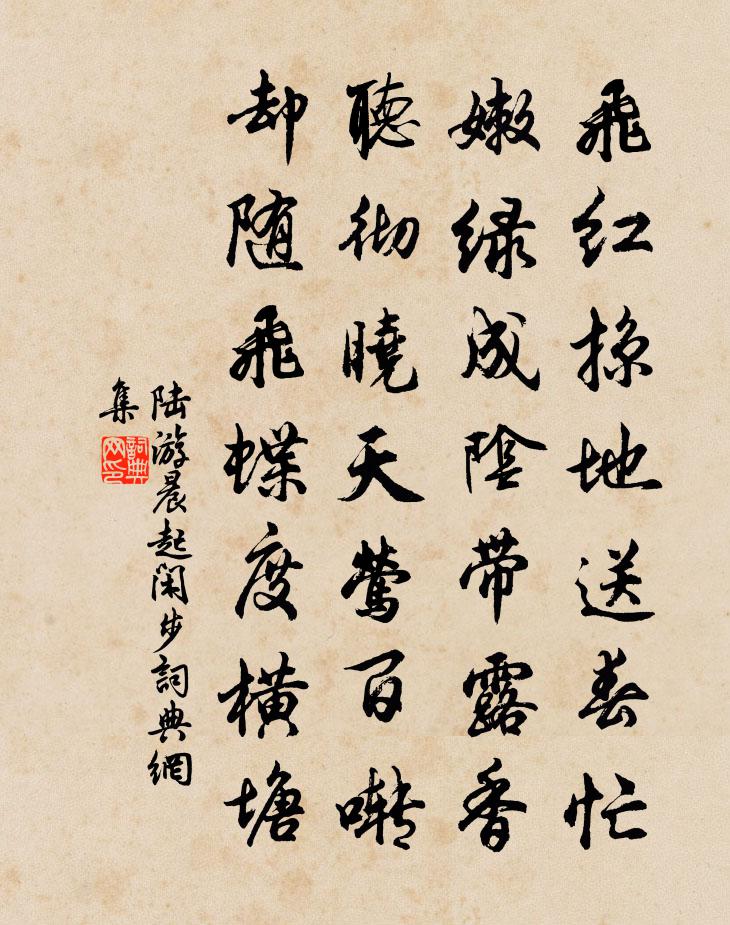 飛紅掠地送春忙
嫩绿成陰带露香
聽彻曉天鶯百囀
却随飛蝶度橫塘
陆游晨起閑步詞典網
集
詞典
网印